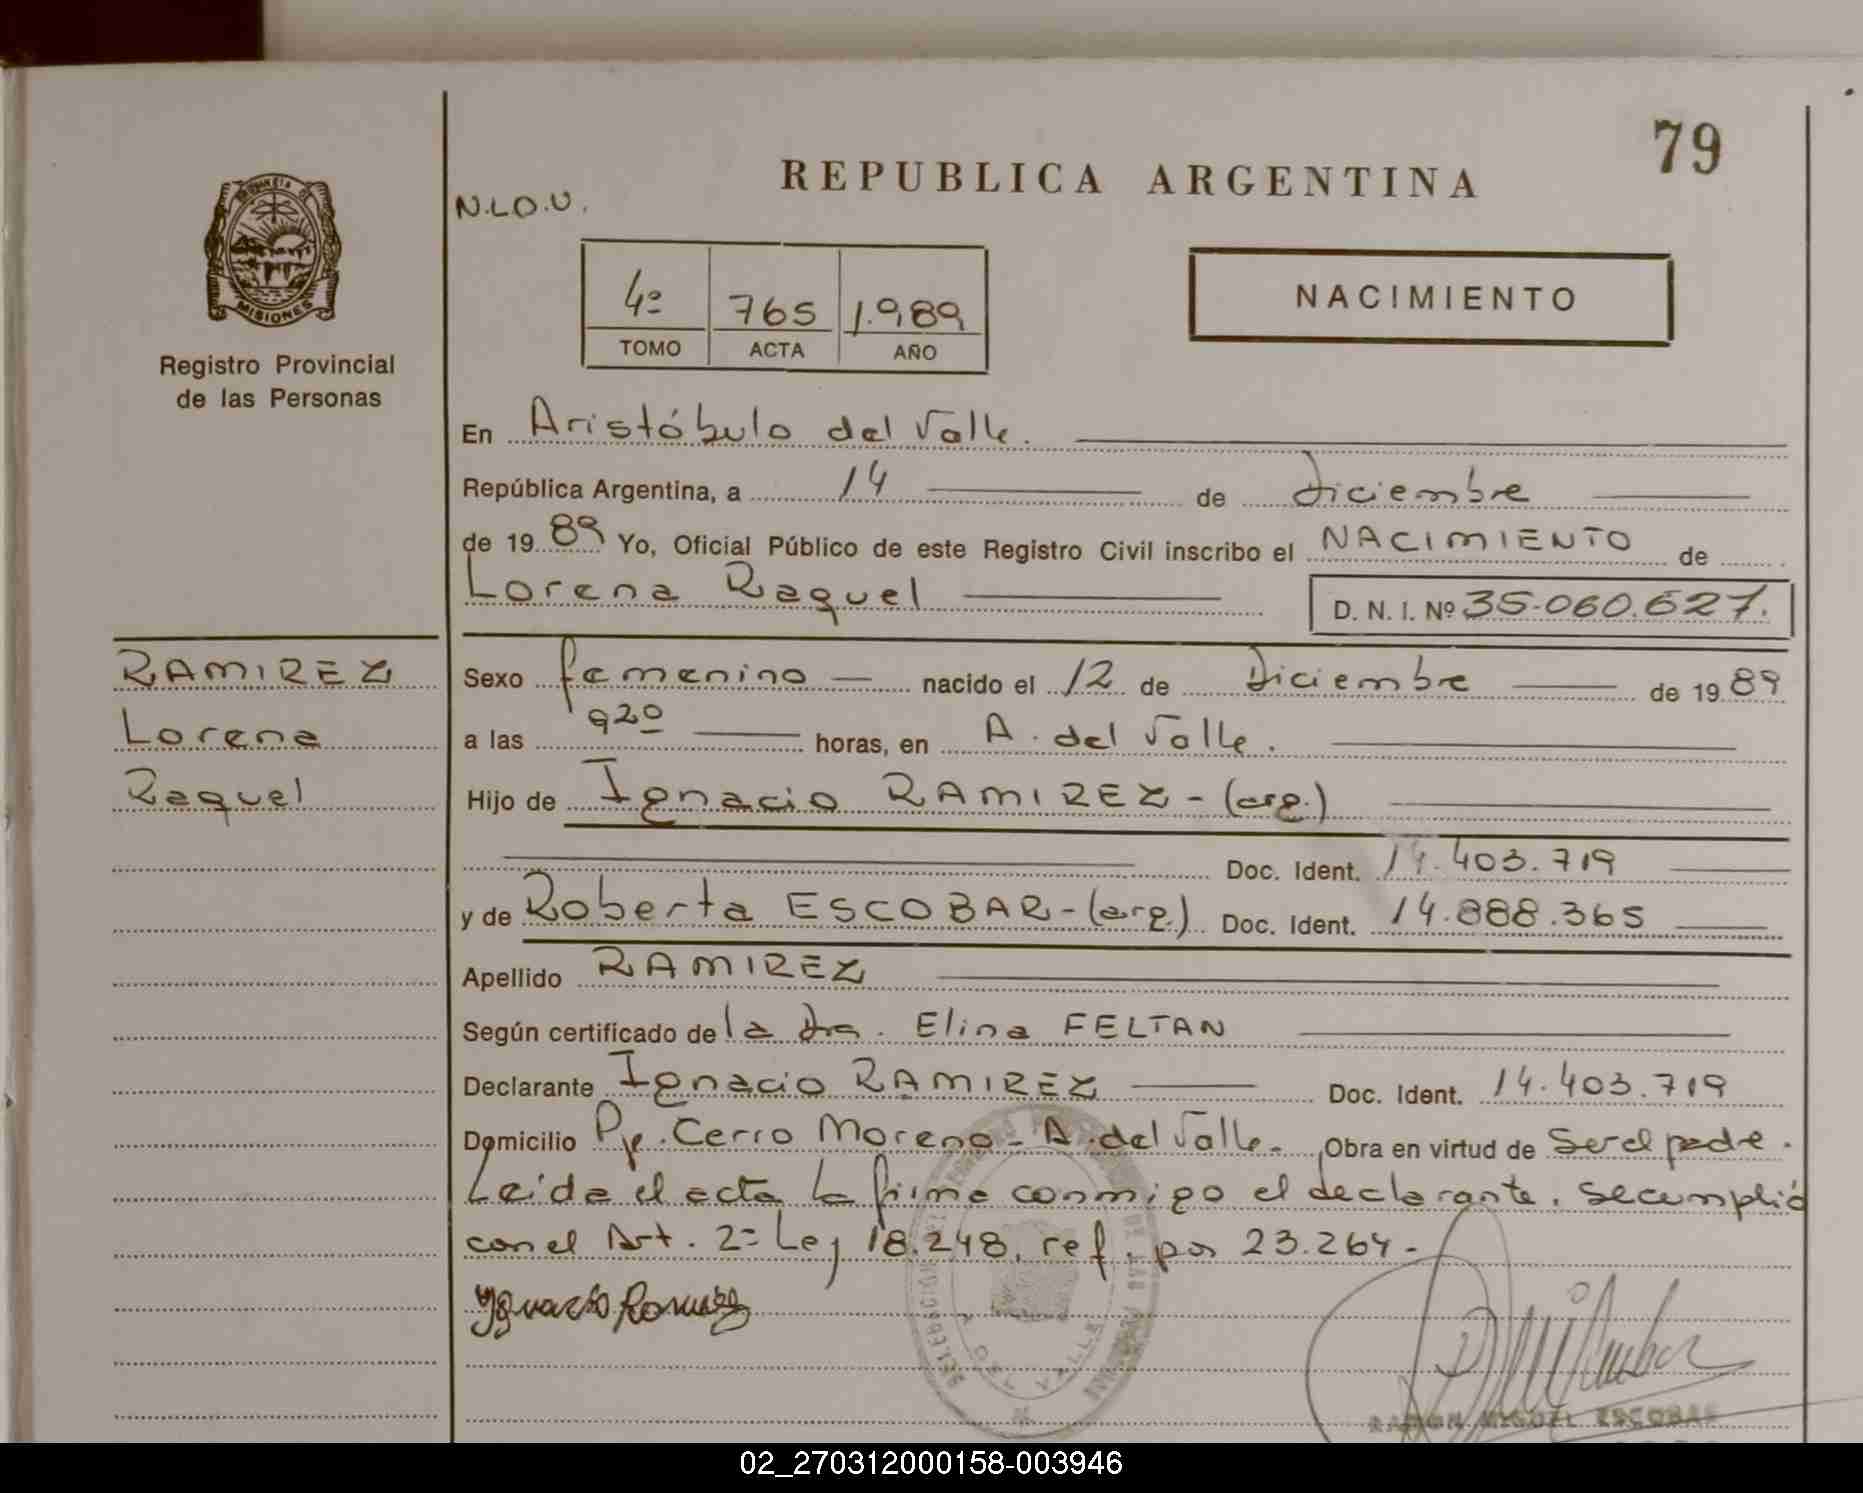 79
REPUBLICA ARGENTINA
N.L.O.U.
PROVINCIA DE
MISIONES
Registro Provincial
de las Personas
4º 765 1.989
TOMO ACTA AÑO
NACIMIENTO
En Aristóbulo del Valle.
República Argentina, a 14 de Diciembre
de 19 89 Yo, Oficial Público de este Registro Civil inscribo el NACIMIENTO de
Lorena Raquel D. N. I. Nº 35.060.627.
RAMIREZ
Lorena
Raquel
Sexo femenino nacido el 12 de Diciembre de 19 89
a las 9 20 horas, en A. del Valle.
Hijo de Ignacio RAMIREZ - (arg.)
Doc. Ident. 14.403.719
y de Roberta ESCOBAR - (arg.) Doc. Ident. 14.888.365
Apellido RAMIREZ
Según certificado de la Dra. Elina FELTAN
Declarante Ignacio RAMIREZ Doc. Ident. 14.403.719
Domicilio Pje. Cerro Moreno - A. del Valle. Obra en virtud de Ser el padre.
Leída el acta la firma conmigo el declarante. Se cumplió
con el Art. 2º Ley 18.248, ref. por 23.264 -
Ygnacio Ramirez
RAMON MIGUEL ESCOBAR
02_270312000158-003946